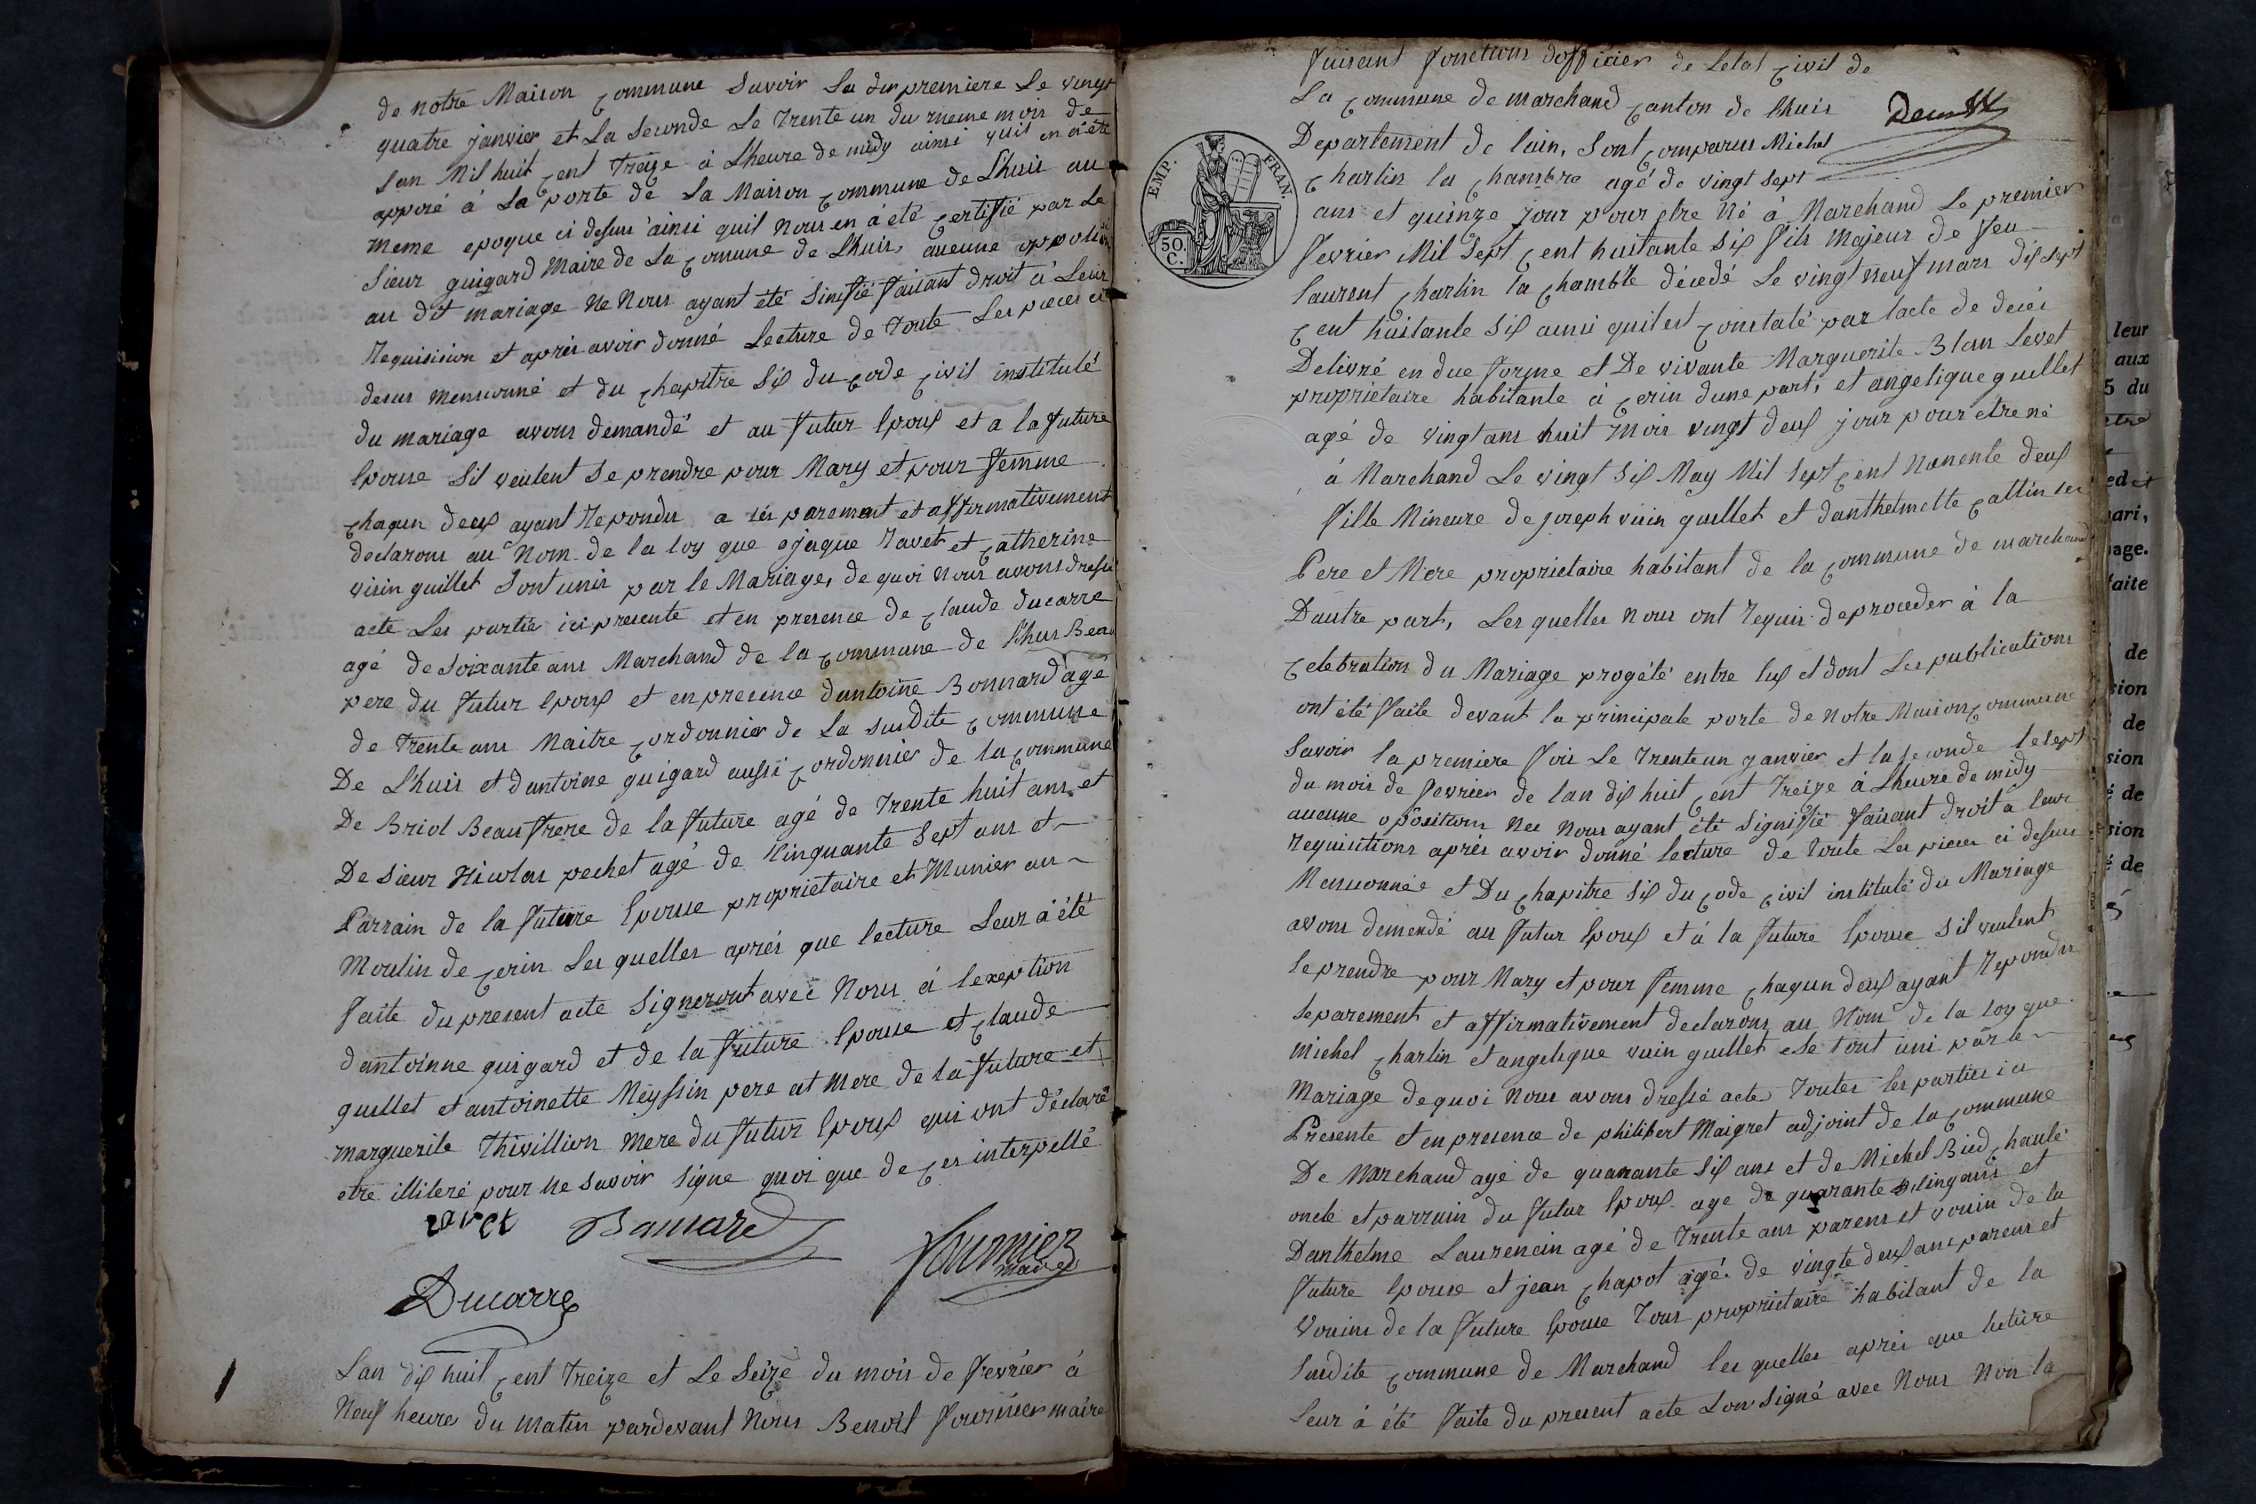 de notre Maison commune Savoir La dit premiere Le vingt
quatre janvier et La Seconde Le Trente un du meme mois de
Lan Mil huit cent Treize à Lheure de midy ainsi quil en a été
apposé à La porte de La Maison commune de Lhuis au
meme epoque ci desus ainsi quil Nous en à été certifié par Le
Sieur guigard Maire de La comune de Lhuis, aucune opposition
au dit mariage Ne Nous ayant été Sinifié faisant droit à Leur
Requisision et après avoir donné Lecture de Toute Les pieces ci
desus mensionné et du chapitre Six du code civil institulé
du mariage avons demandé et au futur Epoux et a la future
Epouse Sil veulent Se prendre pour Mary et pour femme
chaqun deux ayant Repondu a séparement et affirmativement
declarons au Nom de la loy que Jaque Ravet et catherine
vuin guillet Sont unis par le Mariage, de quoi Nous avons dressé
acte Les partie ici presente et en presence de claude ducarre
agé de Soixante ans Marchand de la commune de Lhuis Beau
pere du futur Epoux et en presence dantoine Bonnard agé
de Trente ans Maitre cordonnier de La Susdite commune
De Lhuis et dantoine guigard aussi cordonnier de la commune
De Briol Beau frere de la future agé de Trente huit ans et
De Sieur Nicolas pechet agé de Cinquante Sept ans et
Parrain de la future Epouse proprietaire et Munier au
Moulin de cerin Les quelles après que lecture Leur à été
faite du present acte Signeront avec Nous à lexeption
dantoinne guigard et de la future Epouse et claude
guillet et antoinette Meyssin pere at mere de la future et
marguerite Thivillion mere du futur Epoux qui ont déclaré
etre illiteré pour ne Savoir Signe quoi que de ces interpellé
ravet Bonnard
fournier
maire
Ducarre
1
Lan dix huit cent Treize et Le Seize du mois de fevrier à
Neuf heure du matin pardevant Nous Benoit fournier maire
faisant fonctions dofficier de Letat civil de
La commune de marchand canton de Lhuis
Departement de lain, Sont comparus Michel
EMP. FRAN.
50. C.
charlin la chambre agé de vingt Sept
ans et quinze jour pour etre Né à Marchand Le premier
fevrier Mil Sept cent huitante Six fils Majeur de feu
Laurent charlin la chambre décedé Le vingt neuf mars dix sept
cent huitante Six ainsi quil est constaté par lacte de decés
Delivré en due forme et De vivante Marguerite Blan Levet
proprietaire habitante à cerin dune part, et angelique guillet
agé de vingt ans huit mois vingt deux jour pour etre né
à Marchand Le vingt Six May Mil Sept cent Nonente deux
fille Mineure de joseph vuin guillet et danthelmette callin ses
Pere et Mere proprietaire habitant de la commune de marchand
Dautre part, Les quelles nous ont requis de proceder à la
celebration du Mariage progété entre lux et dont Les publications
ont été faite devant la principale porte de Notre Maison commune
Savoir la premiere fois Le Trente un janvier et la Seconde le Sept
du mois de fevrier de lan dix huit cent Treize à Lheure de midy
aucune oposition Ne Nous ayant été Signifié faisant droit a leur
requisitions après avoir donné lecture de toute Les pieces ci dessus
Mensionnée et Du chapitre Six du code civil institulé du Mariage
avons demendé au futur Epoux et à la future Epouse Sil veulent
Se prendre pour Mary et pour femme chaqun deux ayant Repondu
Separement et affirmativement declarons au Nom de la loy que
Michel charlin et angelique vuin guillet Se Sont uni par le
Mariage de quoi Nous avons dressé acte Toutes les parties ici
Presente et en presence de philibert Maigret adjoint de la commune
De Marchand agé de quarante Six ans et de Michel Bied chaulé
oncle et parrain du futur Epoux agé de quarante Cinq ans et
Danthelme Laurencin agé de Trente ans parens et vouin de la
future Epouse et jean chapot agé de vingte deux ans parens et
Vouins de la future Epouse Tous proprietaire habitant de la
Susdite commune de Marchand les quelles après que lecture
Leur à été faite du present acte Lon Signé avec Nous Non la
leur
aux
5 du
ari,
age.
faite
de
sion
de
sion
de
sion
é de